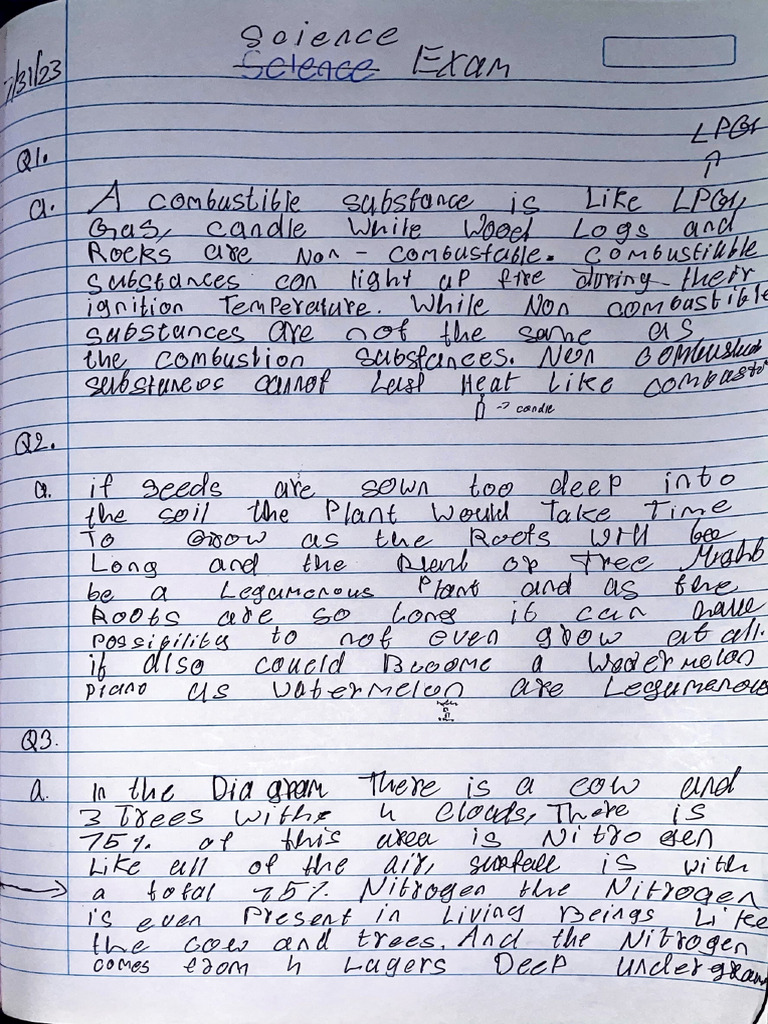 Science
Science Exam
7/31/23
LPG
Q1.
a. A combustible substance is Like LPG,
Gas, candle While Wood Logs and
Rocks are Non - combustable. combustible
substances can light up fire during their
ignition Temperature. While Non combustible
substances are not the same as
the combustion substances. Non
substances cannot Last Heat Like
→ candle
Q2.
a. if seeds are sown too deep into
the soil the Plant Would Take Time
To Grow as the Roots Will be
Long and the Plant or Tree Might
be a Legumenous Plant and as the
Roots are so Long it can have
possibility to not even grow at all.
if also coueld Become a Watermelon
as Watermelon are Legumenous
Q3.
a. In the Diagram There is a cow and
3 Trees withe 4 Clouds, There is
75% of this area is Nitrogen
Like all of the air, surfall is with
a total 75% Nitrogen the Nitrogen
is even Present in Living Beings Like
the cow and trees. And the Nitrogen
comes from 4 Lagers Deep